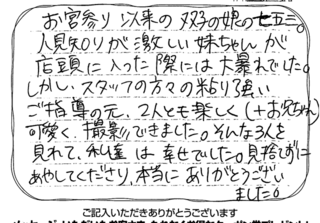 お宮参り以来の双子の娘の七五三。
人見知りが激しい妹ちゃんが
店頭に入った際には大暴れでした。
しかし、スタッフの方々の粘り強い
ご指導の元、2人とも楽しく(+お兄ちゃん)
可愛く、撮影ができました。そんな3人を
見れて、私達は幸せでした。見捨てずに
あやしてくださり、本当にありがとうござい
ました。
ご記入いただきありがとうございます